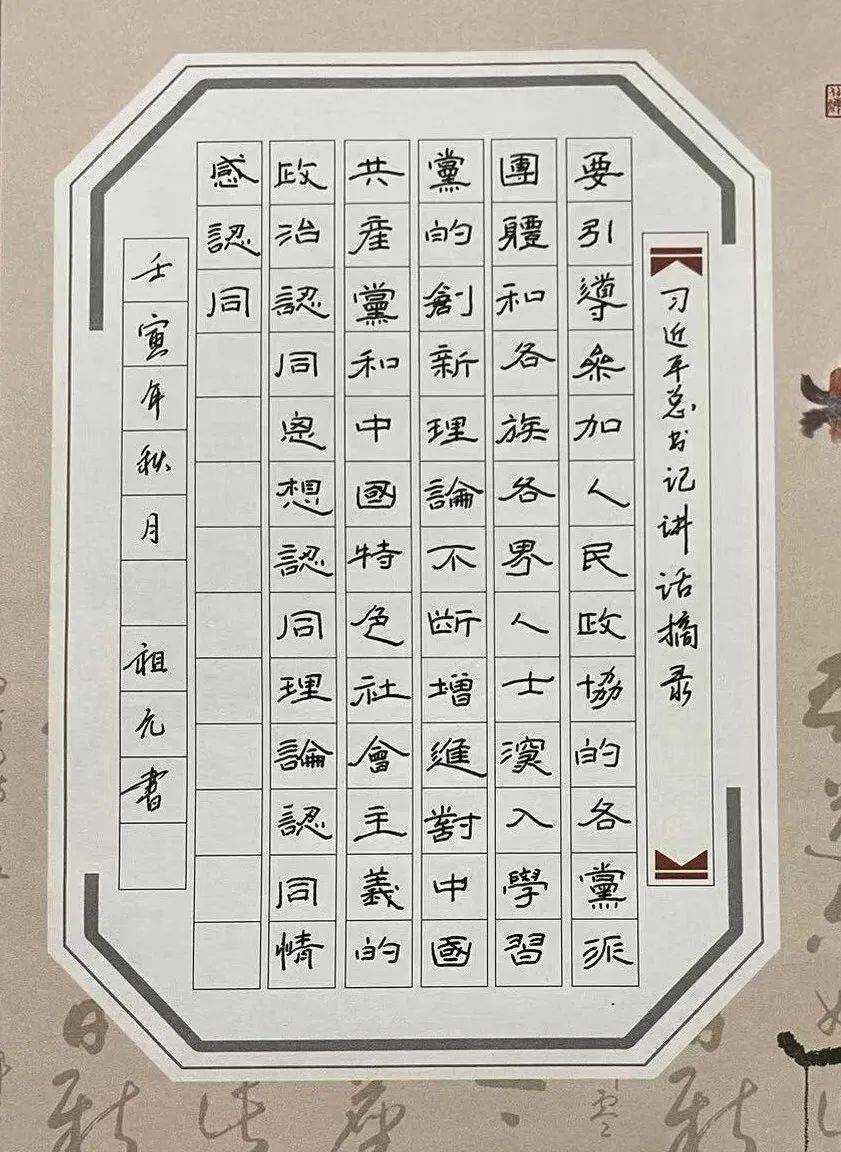 习近平总书记讲话摘录
要引導參加人民政協的各黨派
團體和各族各界人士深入學習
黨的創新理論不斷增進對中國
共産黨和中國特色社會主義的
政治認同思想認同理論認同情
感認同
壬寅年秋月 祖元書